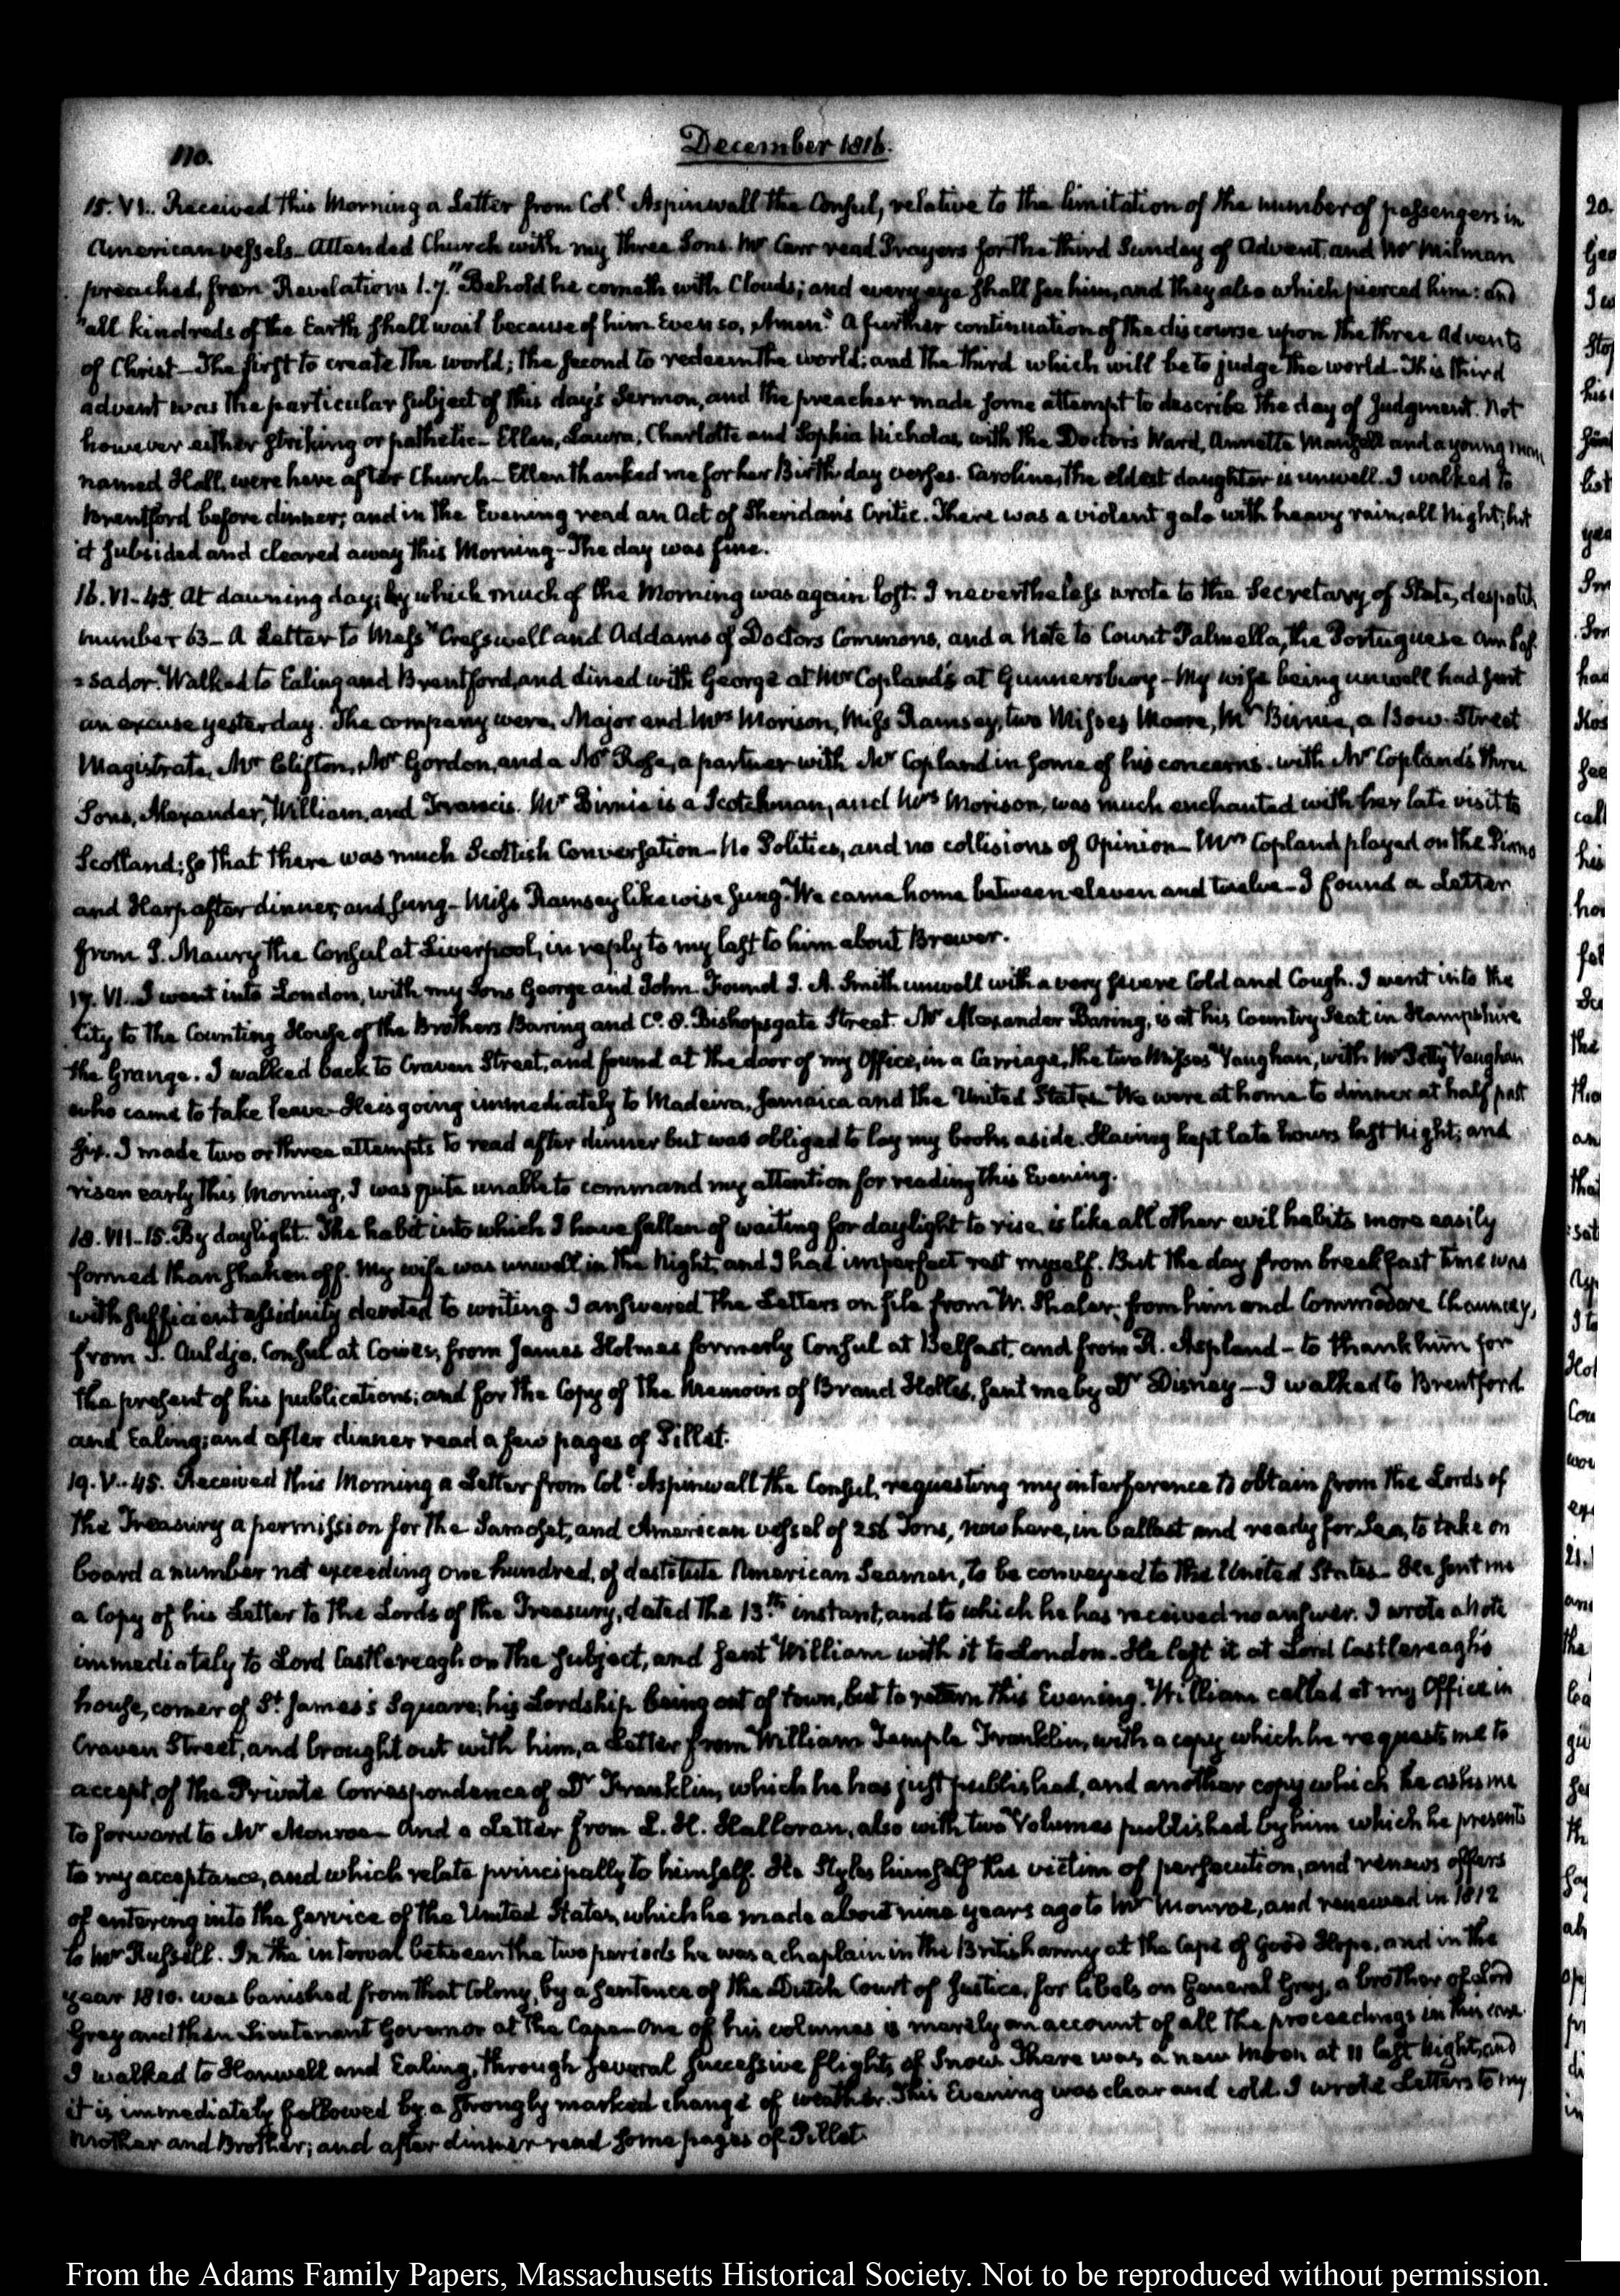 110.
December 1816.
15. VI.. Received this Morning a Letter from Col.l Aspinwall the Consul, relative to the limitation of the number of passengers in
American vessels. Attended Church with my three Sons. Mr Carr read Prayers for the third Sunday of Advent, and Mr Milman
preached, from Revelations 1.7. "Behold he cometh with Clouds; and every eye shall see him, and they also which pierced him: and
"all kindreds of the Earth shall wail because of him. Even so, Amen." A further continuation of the discourse upon the three Advents
of Christ—The first to create the world; the second to redeem the world; and the third which will be to judge the world. This third
advent was the particular subject of this day's Sermon, and the preacher made some attempt to describe the day of Judgment. Not
however either striking or pathetic—Ellen, Laura, Charlotte and Sophia Nicholas, with the Doctor's Ward, Annette and a young man
named Hall, were here after Church—Ellen thanked me for her Birth day verses. Caroline, the eldest daughter is unwell. I walked to
Brentford before dinner; and in the Evening read an Act of Sheridan's Critic. There was a violent gale with heavy rain, all Night; but
it subsided and cleared away this Morning—The day was fine.
16. VI-45. At dawning day; by which much of the Morning was again lost. I nevertheless wrote to the Secretary of State, despatch
number 63—A Letter to Messrs Cresswell and Addams of Doctors Commons, and a Note to Count Palmella, the Portuguese Ambas
=sador. Walked to Ealing and Brentford, and dined with George at Mr Copland's at Gunnersbury—My wife being unwell had sent
an excuse yesterday. The company were, Major and Mrs Morison, Miss Ramsay, two Misses Moore, Mr Birnie, a Bow-Street
Magistrate, Mr Clifton, Mr Gordon, and a Mr Rose, a partner with Mr Copland in some of his concerns. with Mr Copland's three
Sons, Alexander, William, and Francis. Mr Birnie is a Scotchman, and Mrs Morison, was much enchanted with her late visit to
Scotland; so that there was much Scottish Conversation—No Politics, and no collisions of Opinion—Mrs Copland played on the Piano
and Harp after dinner, and sung—Miss Ramsay likewise sung. We came home between eleven and twelve—I found a Letter
from J. Maury the Consul at Liverpool, in reply to my last to him about Brewer.
17. VI. I went into London, with my Sons George and John. Found J. A. Smith unwell with a very severe Cold and Cough. I went into the
City to the Counting House of the Brothers Baring and Co. 8. Bishopsgate Street. Mr Alexander Baring, is at his Country Seat in Hampshire
the Grange. I walked back to Craven Street, and found at the door of my Office, in a Carriage, the two Misses Vaughan, with Mr Petty Vaughan
who came to take leave—He is going immediately to Madeira, Jamaica and the United States. We were at home to dinner at half past
six. I made two or three attempts to read after dinner but was obliged to lay my books aside. Having kept late hours last Night; and
risen early this Morning, I was quite unable to command my attention for reading this Evening.
18. VII-15. By daylight. The habit into which I have fallen of waiting for daylight to rise, is like all other evil habits more easily
formed than shaken off. My wife was unwell in the Night, and I had imperfect rest myself. But the day from breakfast time was
with sufficient assiduity devoted to writing. I answered the Letters on file from W. Shaler; from him and Commodore Chauncey,
from J. Auldjo, Consul at Cowes, from James Holmes formerly Consul at Belfast, and from R. Aspland—to thank him for
the present of his publications; and for the Copy of the Memoirs of Brand Hollis, sent me by Dr Disney—I walked to Brentford
and Ealing; and after dinner read a few pages of Pillet.
19. V..45. Received this Morning a Letter from Col.l Aspinwall the Consul, requesting my interference to obtain from the Lords of
the Treasury a permission for the Samoset, and American vessel of 256 Tons, now here, in ballast and ready for Sea, to take on
board a number not exceeding one hundred, of destitute American Seamen, to be conveyed to the United States—He sent me
a Copy of his Letter to the Lords of the Treasury, dated the 13th instant, and to which he has received no answer. I wrote a Note
immediately to Lord Castlereagh on the subject, and sent William with it to London. He left it at Lord Castlereagh's
house, corner of St James's Square; his Lordship being out of town, but to return this Evening. William called at my Office in
Craven Street, and brought out with him, a Letter from William Temple Franklin, with a copy which he requests me to
accept, of the Private Correspondence of Dr Franklin, which he has just published, and another copy which he asks me
to forward to Mr Monroe—And a Letter from L. H. Halloran, also with two Volumes published by him which he presents
to my acceptance, and which relate principally to himself. He Styles himself the victim of persecution, and renews offers
of entering into the service of the United States, which he made about nine years ago to Mr Monroe, and renewed in 1812
to Mr Russell. In the interval between the two periods he was a chaplain in the British army at the Cape of Good Hope, and in the
year 1810. was banished from that Colony, by a sentence of the Dutch Court of Justice, for libels on General Grey, a brother of Lord
Grey and then Lieutenant Governor at the Cape—One of his columes is merely an account of all the proceedings in this case.
I walked to Hanwell and Ealing, through several successive flights of Snow. There was a new Moon at 11 last Night; and
it is immediately followed by a strongly marked change of weather. This Evening was clear and cold. I wrote Letters to my
Mother and Brother; and after dinner read some pages of Pillet.
From the Adams Family Papers, Massachusetts Historical Society. Not to be reproduced without permission.